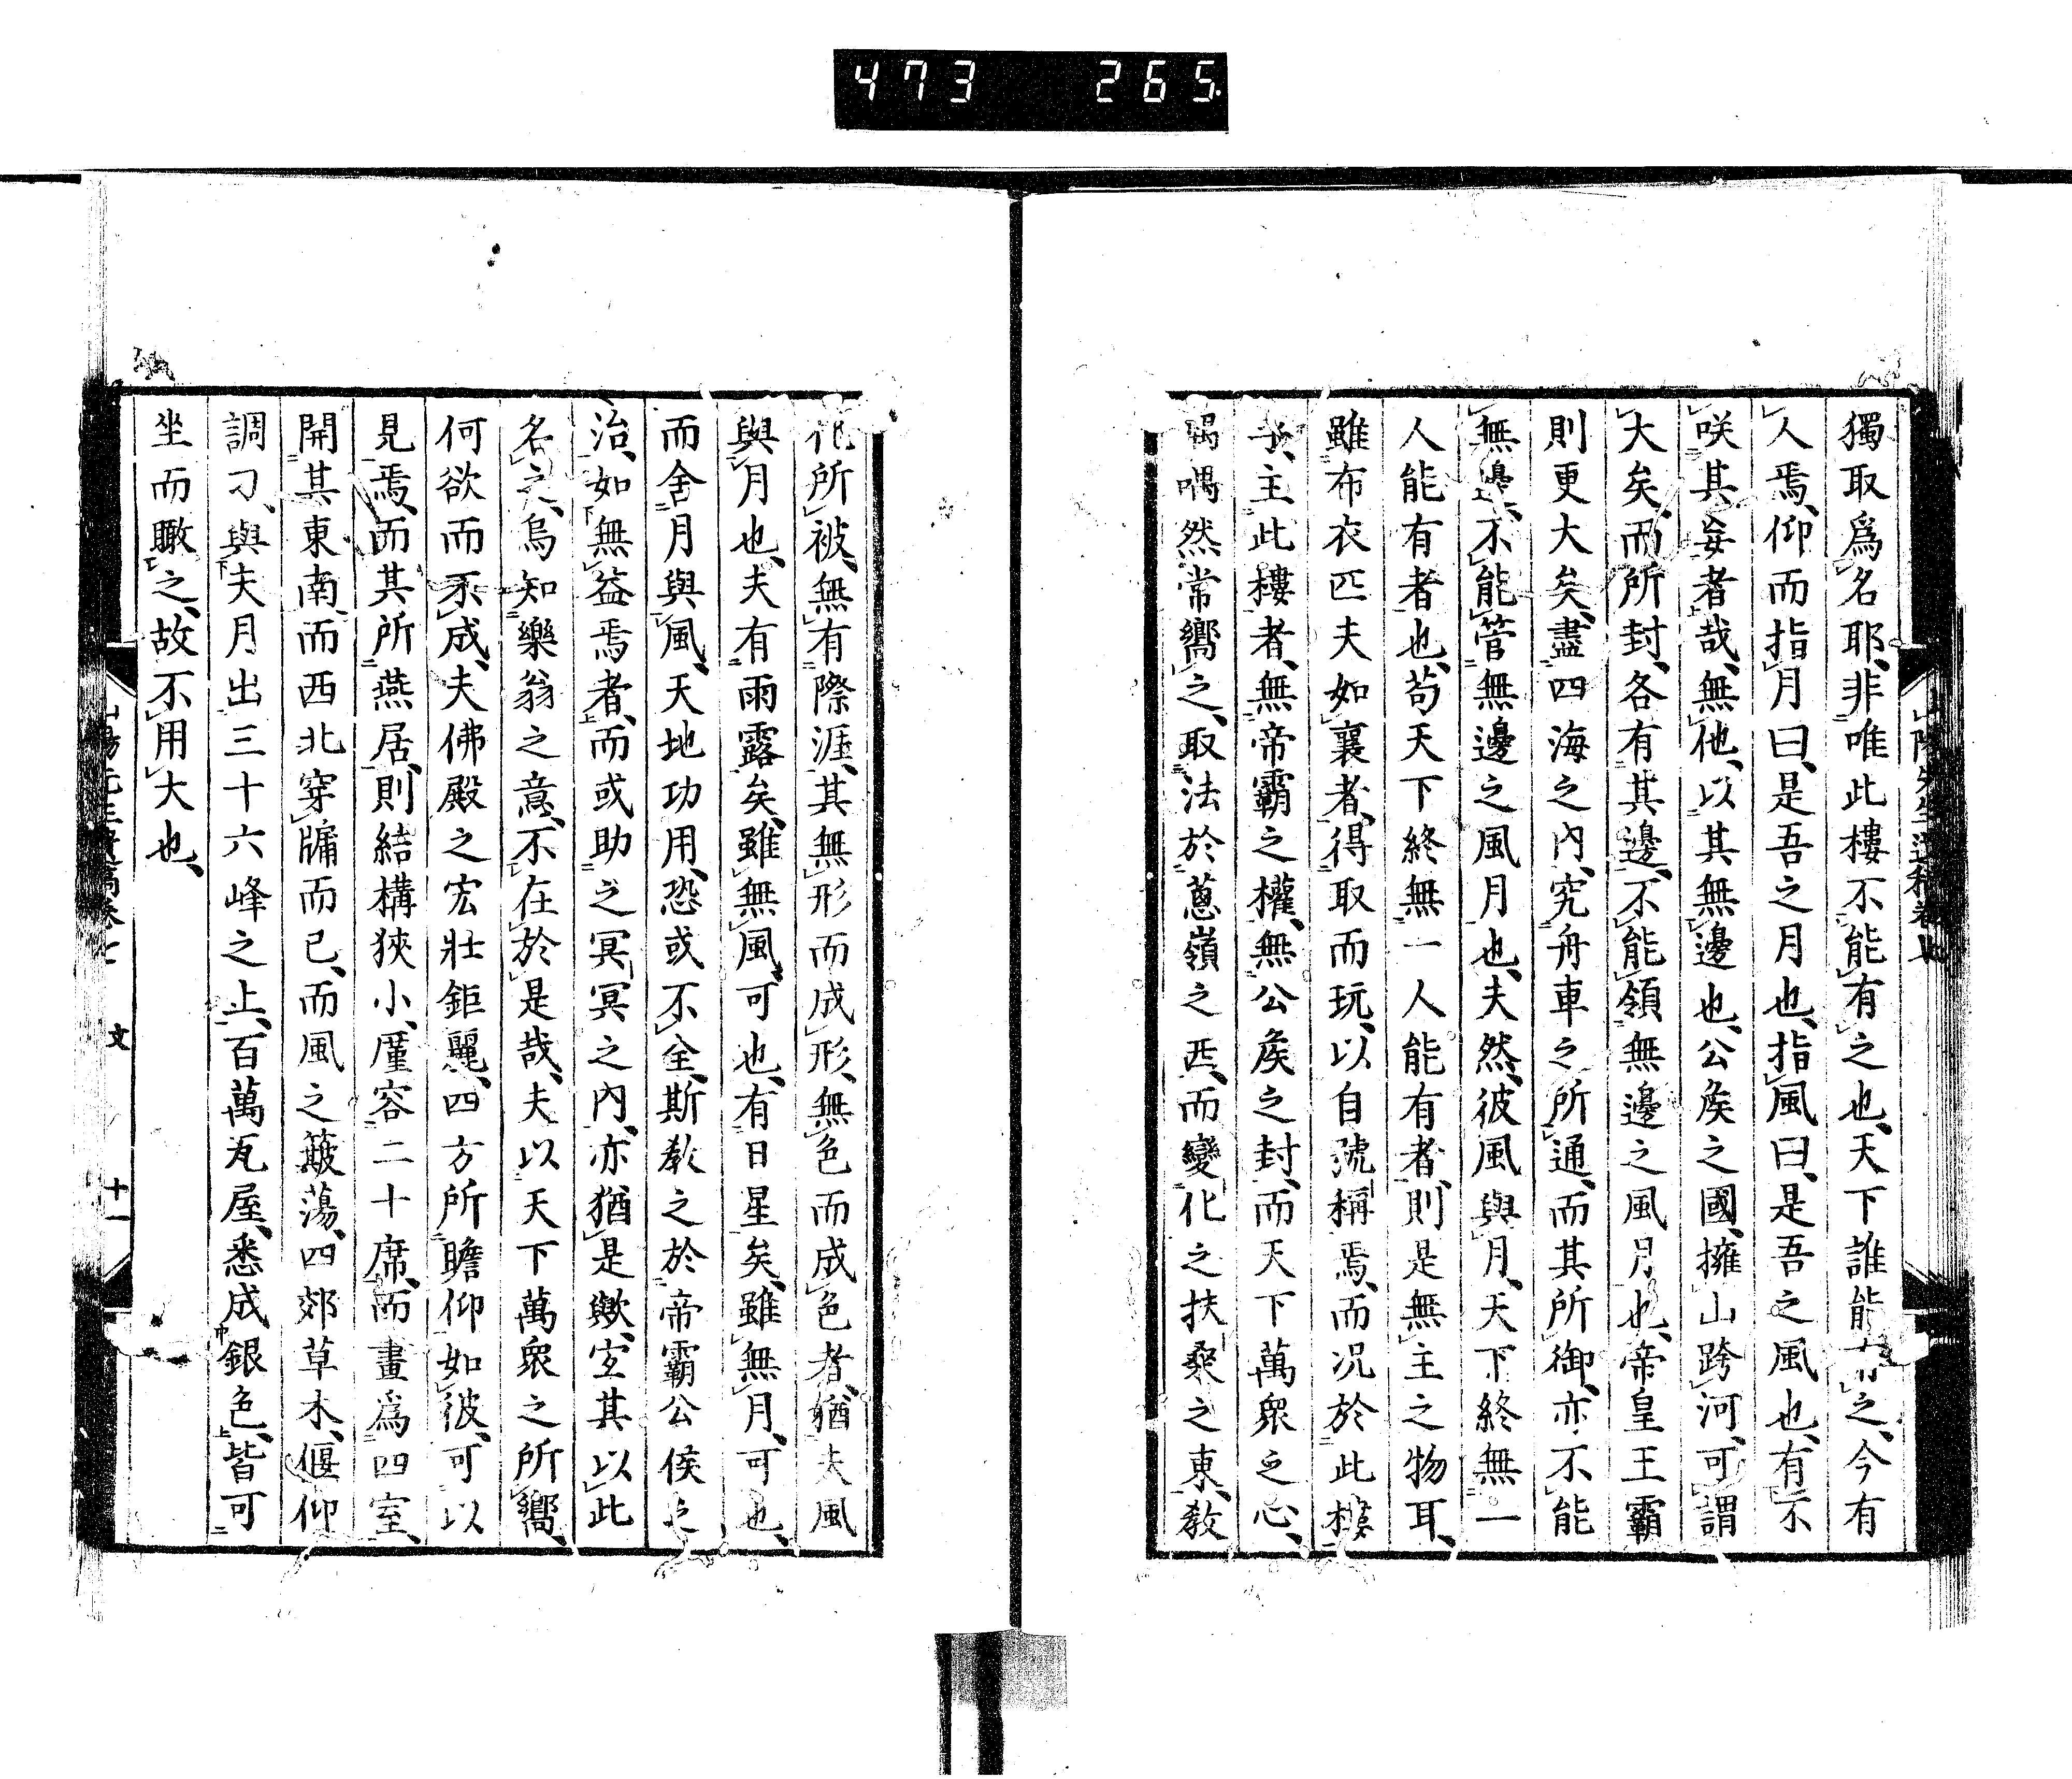 473 265
獨取爲名耶、非唯此樓不能有之也、天下誰能有之、今有
人焉、仰而指月曰、是吾之月也、指風曰、是吾之風也、有不
咲其妄者哉、無他、以其無邊也、公矦之國、擁山跨河、可謂
大矣、而所封、各有其邊、不能領無邊之風月也、帝皇王霸
則更大矣、盡四海之內、究舟車之所通、而其所御、亦不能
無邊、不能管無邊之風月也、夫然、彼風與月、天下終無一
人能有者也、苟天下終無一人能有者、則是無主之物耳、
雖布衣匹夫如襄者、得取而玩、以自號稱焉、而況於此樓
乎、主此樓者、無帝霸之權、無公矦之封、而天下萬衆之心、
喁喁然常嚮之、取法於蔥嶺之西、而變化之扶桒之東、敎
化所被、無有際涯、其無形而成形、無色而成色者、猶夫風
與月也、夫有雨露矣、雖無風、可也、有日星矣、雖無月、可也、
而舍月與風、天地功用、恐或不全、斯敎之於帝霸公侯之
治、如無益焉者、而或助之冥冥之內、亦猶是歟、宐其以此
名之、烏知樂翁之意、不在於是哉、夫以天下萬衆之所嚮、
何欲而不成、夫佛殿之宏壯鉅麗、四方所瞻仰如彼、可以
見焉、而其所燕居、則結構狹小、廑容二十席、而畫爲四室、
開其東南、而西北穿牗而已、而風之簸蕩、四郊草木、偃仰
調刁、與夫月出三十六峰之上、百萬瓦屋、悉成銀色、皆可
坐而瞰之、故不用大也、
文 十一